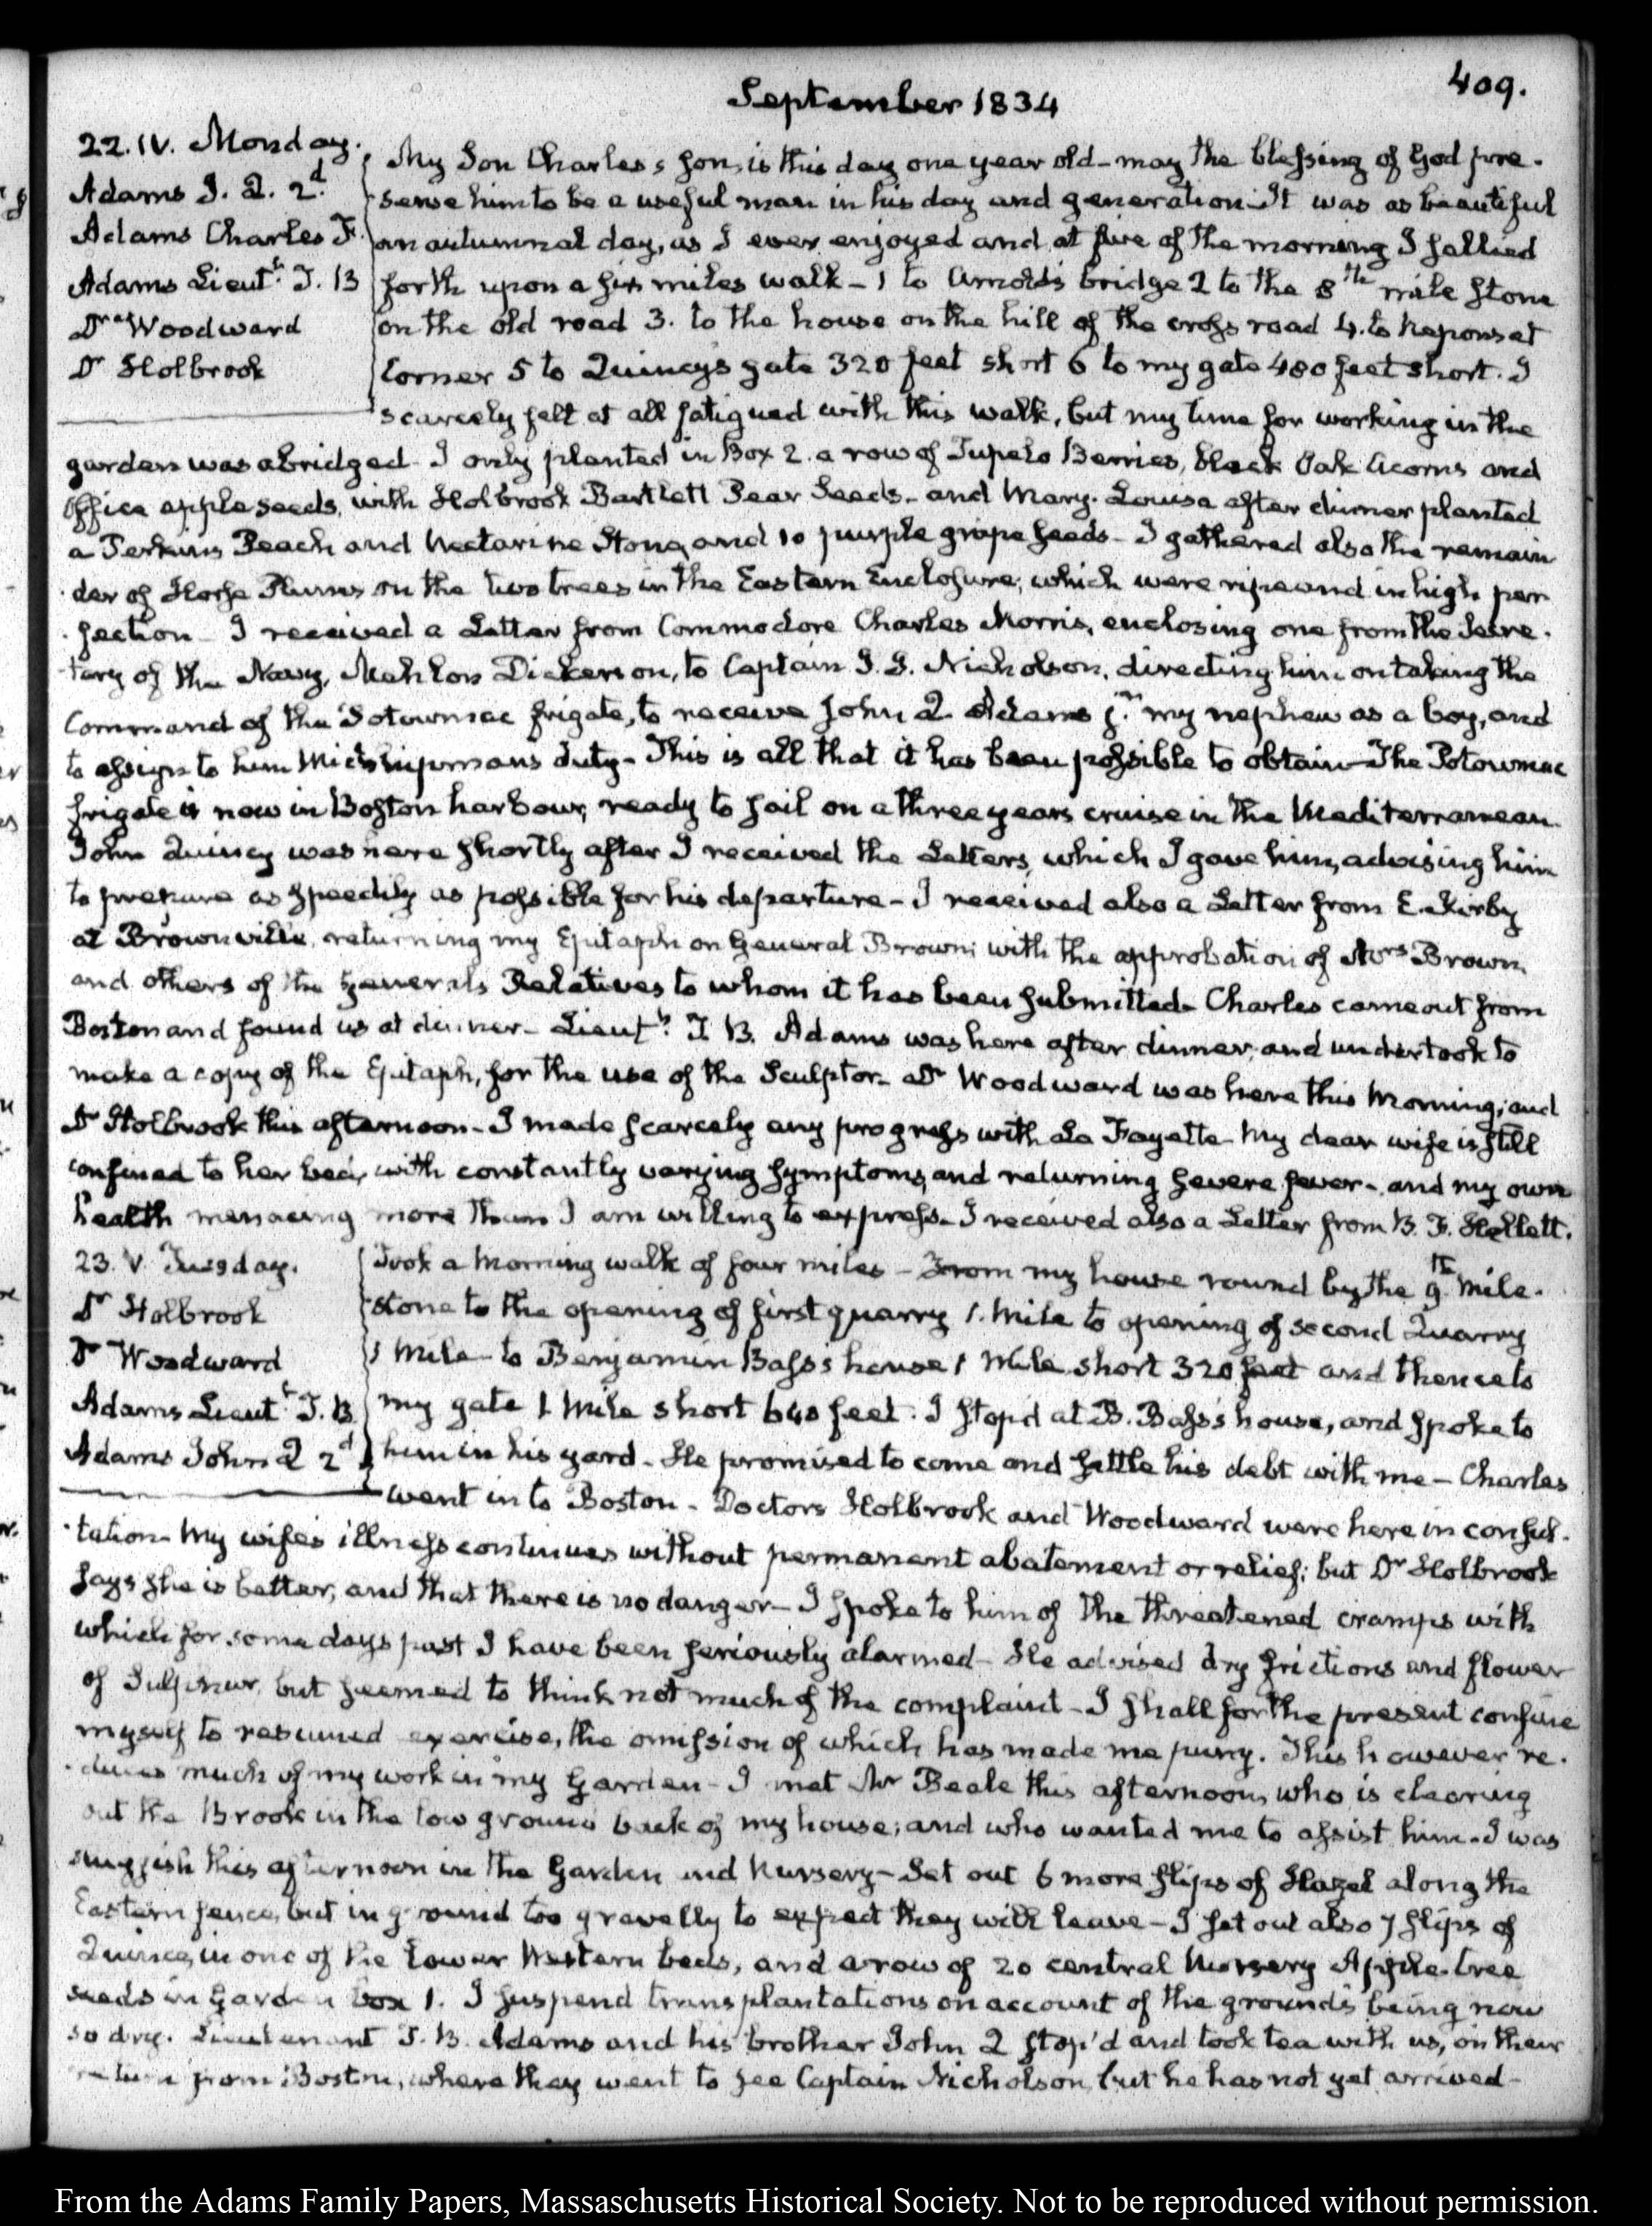 September 1834
409.
22. IV. Monday.
Adams J. Q. 2d.
Adams Charles F.
Adams Lieutt. T. B
Dr Woodward
Dr Holbrook
My Son Charles's son, is this day one year old - may the blessing of God pre-
serve him to be a useful man in his day and generation - It was as beautiful
an autumnal day, as I ever enjoyed and at five of the morning I sallied
forth upon a six miles walk - 1 to Arnold's bridge 2 to the 8th mile stone
on the old road 3. to the house on the hill of the cross road 4. to Neponset
Corner 5 to Quincy's gate 320 feet short 6 to my gate 480 feet short. I
scarcely felt at all fatigued with this walk, but my time for working in the
garden was abridged - I only planted in Box 2. a row of Tupelo Berries, black Oak Acorns and
Office apple seeds, with Holbrook Bartlett Pear Seeds - and Mary Louisa after dinner planted
a Perkins Peach and Nectarine Stone, and 10 purple grape seeds - I gathered also the remain
der of Horse Plums on the two trees in the Eastern Enclosure, which were ripe and in high per
fection - I received a Letter from Commodore Charles Morris, enclosing one from the Secre-
tary of the Navy, Mahlon Dickerson, to Captain J. J. Nicholson, directing him on taking the
Command of the Potowmac frigate, to receive John Q. Adams jr. my nephew as a boy, and
to assign to him Midshipmans duty - This is all that it has been possible to obtain - The Potowmac
frigate is now in Boston harbour, ready to sail on a three years cruise in the Mediterranean.
John Quincy was here shortly after I received the Letters, which I gave him, advising him
to prepare as speedily as possible for his departure - I received also a Letter from E. Kirby
at Brownville, returning my Epitaph on General Brown; with the approbation of Mrs Brown,
and others of the Generals Relatives to whom it has been submitted - Charles came out from
Boston and found us at dinner - Lieutt. T. B. Adams was here after dinner, and undertook to
make a copy of the Epitaph, for the use of the Sculptor - Dr Woodward was here this Morning, and
Dr Holbrook this afternoon - I made scarcely any progress with La Fayette - My dear wife is still
confined to her bed, with constantly varying symptoms, and returning severe fever - and my own
health menacing more than I am willing to express - I received also a Letter from B. F. Hallett.
23. V. Tuesday.
Dr Holbrook
Dr Woodward
Adams Lieutt. T. B.
Adams John Q 2d
Took a Morning walk of four miles - From my house round by the 9th Mile-
stone to the opening of first quarry 1. Mile to opening of second Quarry
1 Mile - to Benjamin Bass's house 1 Mile short 320 feet and thence to
my gate 1 Mile short 640 feet. I stop'd at B. Bass's house, and spoke to
him in his yard - He promised to come and settle his debt with me - Charles
went in to Boston - Doctors Holbrook and Woodward were here in consul-
tation - My wife's illness continues without permanent abatement or relief; but Dr Holbrook
says she is better, and that there is no danger - I spoke to him of the threatened cramps with
which for some days past I have been seriously alarmed - He advised dry frictions and flower
of Sulphur, but seemed to think not much of the complaint - I shall for the present confine
myself to resumed exercise, the omission of which has made me pursy. This however re-
duces much of my work in my Garden - I met Mr Beale this afternoon, who is clearing
out the Brook in the low ground back of my house; and who wanted me to assist him - I was
sluggish this afternoon in the Garden and Nursery - Set out 6 more slips of Hazel along the
Eastern fence, but in ground too gravelly to expect they will leave - I set out also 7 slips of
Quince, in one of the lower Western beds, and a row of 20 central Nursery Apple-tree
seeds in Garden box 1. I suspend transplantations on account of the grounds being now
so dry. Lieutenant T. B. Adams and his brother John Q stop'd and took tea with us, on their
return from Boston, where they went to see Captain Nicholson, but he has not yet arrived -
From the Adams Family Papers, Massaschusetts Historical Society. Not to be reproduced without permission.